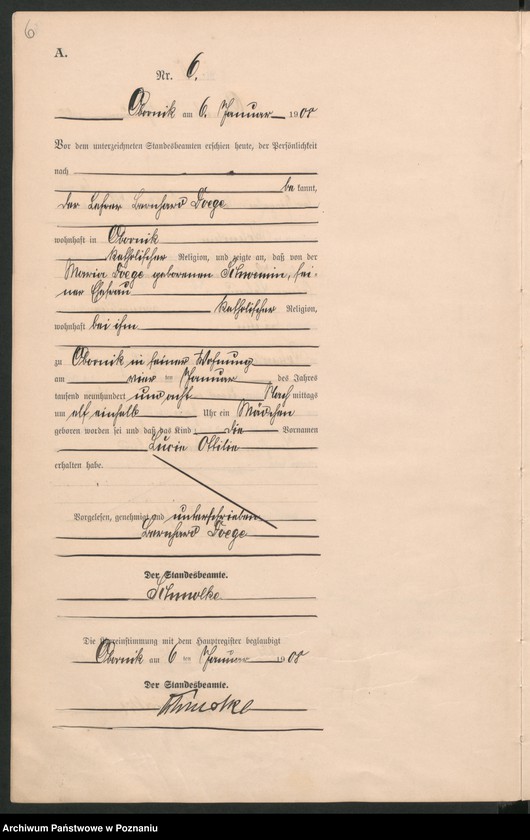 6
A.
Nr. 6.
Obornik am 6. Januar 1908
Vor dem unterzeichneten Standesbeamten erschien heute, der Persönlichkeit
nach
be kannt,
der Lehrer Bernhard Doege
wohnhaft in Obornik
katholischer Religion, und zeigte an, daß von der
Maria Doege geborenen Schramm, sei-
ner Ehefrau
katholischer Religion,
wohnhaft bei ihm
zu Obornik in seiner Wohnung
am vier ten Januar des Jahres
tausend neunhundert und acht Nach mittags
um elf einhalb Uhr ein Mädchen
geboren worden sei und daß das Kind die Vornamen
Lucie Ottilie
erhalten habe.
Vorgelesen, genehmigt und unterschrieben
Bernhard Doege
Der Standesbeamte.
Schmolke
Die Übereinstimmung mit dem Hauptregister beglaubigt
Obornik am 6 ten Januar 1908
Der Standesbeamte.
Schmolke
Archiwum Państwowe w Poznaniu